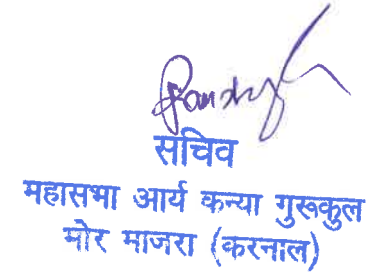 सचिव
महासभा आर्य कन्या गुरूकुल
मोर माजरा (करनाल)